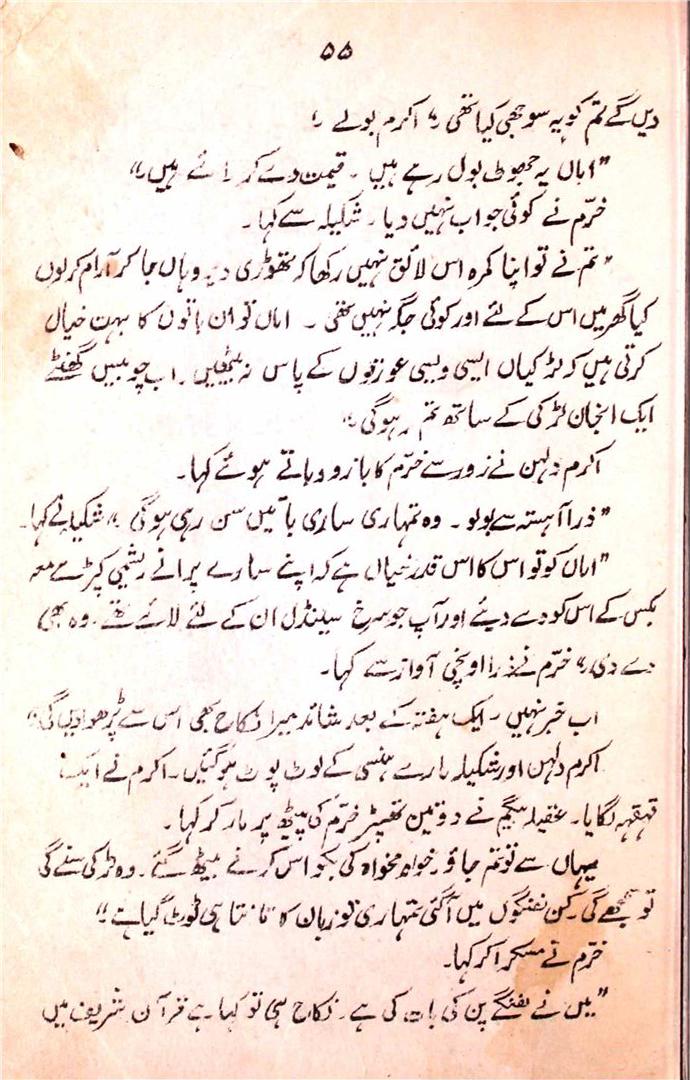 ۵۵
دیں گے تم کو یہ سوجھی کیا تھی ؟" اکرم بولے ۔
"اماں یہ جھوٹ بول رہے ہیں ۔ قیمت دے کر لائے ہیں۔"
خرّم نے کوئی جواب نہیں دیا ۔ شکیلہ سے کہا ۔
"تم نے تو اپنا کمرہ اس لائق نہیں رکھا کہ تھوڑی دیر وہاں جا کر آرام کر لوں
کیا گھر میں اس کے لئے اور کوئی جگہ نہیں تھی ۔ اماں تو ان باتوں کا بہت خیال
کرتی ہیں کہ لڑکیاں ایسی ویسی عورتوں کے پاس نہ بیٹھیں ۔ اب چوبیس گھنٹے
ایک انجان لڑکی کے ساتھ تم رہو گی ۔"
اکرم دلہن نے زور سے خرّم کا بازو دباتے ہوئے کہا ۔
"ذرا آہستہ سے بولو ۔ وہ تمہاری ساری باتیں سن رہی ہو گی ۔" شکیلہ نے کہا ۔
"اماں کو تو اس کا اس قدر خیال ہے کہ اپنے سارے پرانے ریشمی کپڑے معہ
بکس کے اس کو دے دیئے اور آپ جو سرخ سینڈل ان کے لئے لائے تھے ۔ وہ بھی
دے دی ۔" خرّم نے ذرا اونچی آواز سے کہا ۔
اب خبر نہیں ۔ ایک ہفتہ کے بعد شائد میرا نکاح بھی اس سے پڑھوا دیں گی ۔"
اکرم دلہن اور شکیلہ مارے ہنسی کے لوٹ پوٹ ہو گئیں ۔ اکرم نے ایک
قہقہہ لگایا ۔ عقیلہ بیگم نے دو تین تھپڑ خرّم کی پیٹھ پر مار کر کہا ۔
یہاں سے تو تم جاؤ ۔ خواہ مخواہ کی بکواس کرنے بیٹھ گئے ۔ وہ لڑکی سنے گی
تو سمجھے گی ۔ کن لفنگوں میں آ گئی تمہاری تو زبان کا تانتا ہی ٹوٹ گیا ہے ۔"
خرّم نے مسکرا کر کہا ۔
"میں نے لفنگے پن کی بات کی ہے ۔ نکاح ہی تو کہا ہے قرآن شریف میں